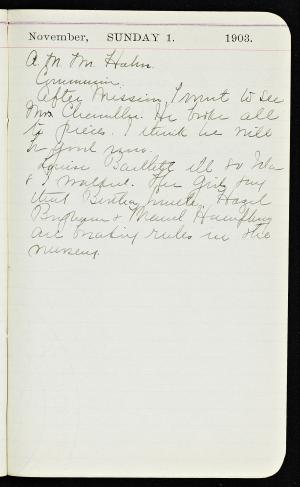 November, SUNDAY 1. 1903.
A. M. Mr. Hahn.
Communion.
After Mission, I went to see
Mrs. Chandler. He broke all
to pieces. I think he will
do good
Louise Bartlett ill so
& I walked. The Girls say
that Bertha Hazel
Brigham & Maud
are breaking rules in the
nursery.